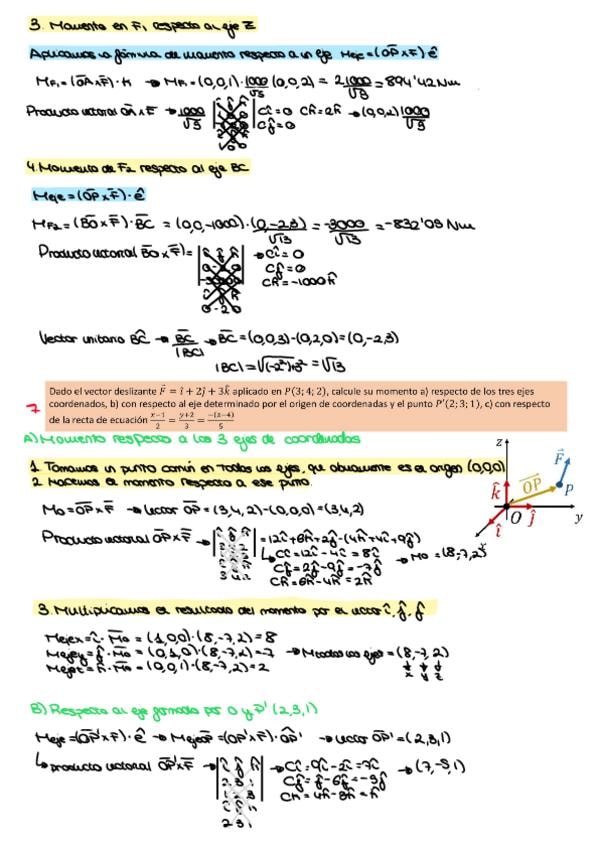 3. Momento en F₁ respecto al eje Z
Aplicamos la fórmula de momento respecto a un eje Meje = (OP x F) ê
M F₁ = (OA x F) · k → M F₁ = (0,0,1) · 1000/√5 (0,0,2) = 2 1000/√5 = 894'42 Nm
Producto vectorial OA x F → 1000/√5 Cî = 0 Ck̂ = 2k̂ → (0,0,2) 1000/√5
Cĵ = 0
4. Momento de F₂ respecto al eje BC
Meje = (OP x F) · ê
M F₂ = (BO x F) · BC = (0,0,-1000) · (0,-2,3)/√13 = -3000/√13 = -832'05 Nm
Producto vectorial BO x F) = → Cî = 0
Cĵ = 0
Ck̂ = -1000 k̂
0 -2 0
Vector unitario BĈ → BC/|BC| → BC = (0,0,3)-(0,2,0) = (0,-2,3)
|BC| = √(-2²)+3² = √13
Dado el vector deslizante F⃗ = î + 2ĵ + 3k̂ aplicado en P(3; 4; 2), calcule su momento a) respecto de los tres ejes
7 coordenados, b) con respecto al eje determinado por el origen de coordenadas y el punto P'(2; 3; 1), c) con respecto
de la recta de ecuación (x-1)/2 = (y+2)/3 = -(z-4)/5
A) Momento respecto a los 3 ejes de coordenadas
1. Tomamos un punto común en todos los ejes, que obviamente es el origen (0,0,0)
2. Hacemos el momento respecto a ese punto.
z
F⃗
k̂ OP P
O ĵ y
î
Mo = OP x F → Vector OP = (3,4,2)-(0,0,0) = (3,4,2)
Producto vectorial OP x F → = 12î + 6k̂ + 2ĵ - (4k̂ + 4î + 9ĵ)
Cî = 12î - 4î = 8î
Cĵ = 2ĵ - 9ĵ = -7ĵ → Mo = (8,-7,2)
Ck̂ = 6k̂ - 4k̂ = 2k̂
3 4 2
3. Multiplicamos el resultado del momento por el vector î, ĵ, ĵ
Mejex = î · Mo = (1,0,0) · (8,-7,2) = 8
Mejey = ĵ · Mo = (0,1,0) · (8,-7,2) = -7 → Mtodos los ejes = (8,-7,2)
Mejez = k̂ · Mo = (0,0,1) · (8,-7,2) = 2 x y z
B) Respecto al eje formado por O y P' (2,3,1)
Meje = (OP' x F) · ê → MejeOP = (OP' x F) · OP̂' → Vector OP' = (2,3,1)
producto vectorial OP' x F → Cî = 9î - 2î = 7î → (7,-5,1)
Cĵ = ĵ - 6ĵ = -5ĵ
Ck = 4k̂ - 3k̂ = k̂
2 3 1